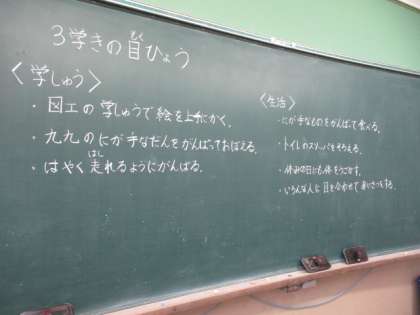 3学きの目ひょう
もく
〈学しゅう〉
・図工の学しゅうで絵を上手にかく。
・九九のにが手なだんをがんばっておぼえる。
はし
・はやく走れるようにがんばる。
〈生活〉
・にが手なものをがんばって食べる。
・トイレのスリッパをそろえる。
・休みの日にも体をうごかす。
・いろんな人に目を合わせてあいさつをする。